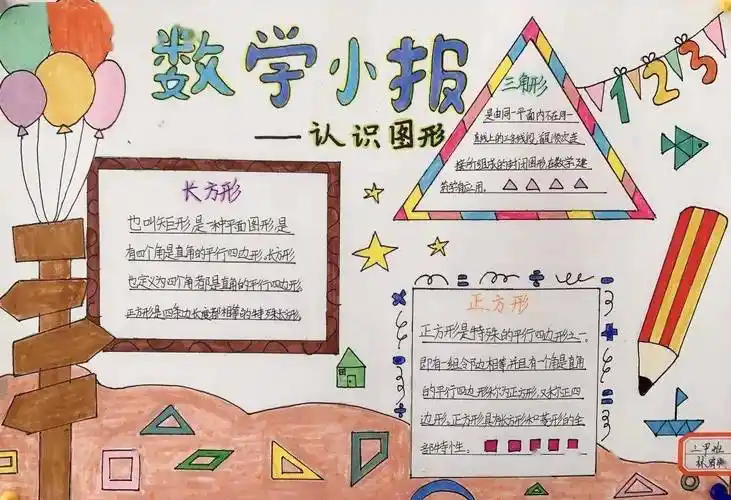 数学小报
——认识图形
123
三角形
是由同一平面内不在同一
直线上的三条线段首尾顺次连
接所组成的封闭图形,在数学、建
筑学有应用。
长方形
也叫矩形,是一种平面图形,是
有四个角是直角的平行四边形,长方形
也定义为四个角都是直角的平行四边形,
正方形是四条边长度都相等的特殊长方形。
正方形
正方形是特殊的平行四边形之一。
即有一组邻边相等,并且有一个角是直角
的平行四边形称为正方形,又称正四
边形。正方形具有长方形和菱形的全
部特性。
二甲班
林